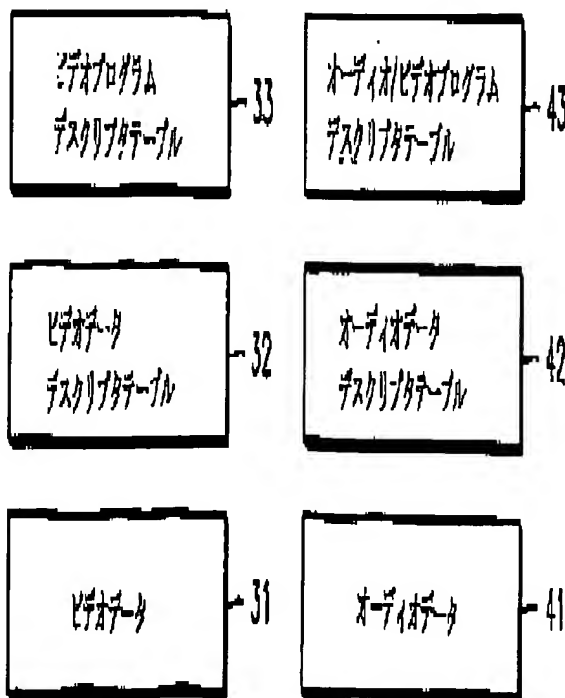 ビデオプログラム
デスクリプタテーブル
33
オーディオ/ビデオプログラム
デスクリプタテーブル
43
ビデオデータ
デスクリプタテーブル
32
オーディオデータ
デスクリプタテーブル
42
ビデオデータ
31
オーディオデータ
41